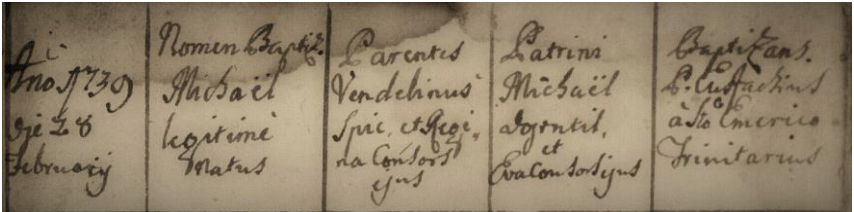 Año 1739
Die 28
Februarij
Nomen Baptiz.
Michaël
legitimè
natus
Parentes
Vendelinus
Spic. et Regi,
na Consors
ejus
Patrini
Michaël
et
Eva Consors ejus
Baptizans.
P. Eustachius
à Sto Emerico
Trinitarius